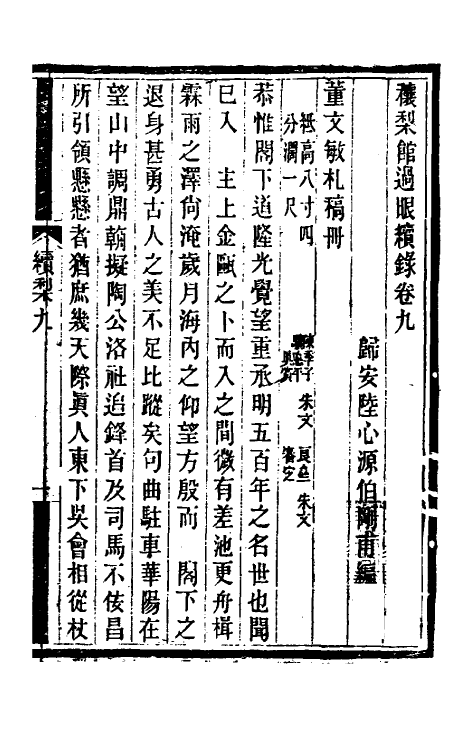 穰梨館過眼續錄卷九
歸安陸心源伯剛甫編
董文敏札稿冊
紙高八寸四
分濶一尺
朱文
朱文
恭惟閣下道隆光覺望重承明五百年之名世也聞
巳入　主上金甌之卜而入之間微有差池更舟楫
霖雨之澤尙淹歲月海內之仰望方殷而　閣下之
退身甚勇古人之美不足比蹤矣句曲駐車華陽在
望山中調鼎翰擬陶公洛社追鋒首及司馬不佞昌
所引領懸懸者猶庶幾天際眞人東下吳會相從杖
續梨九
一